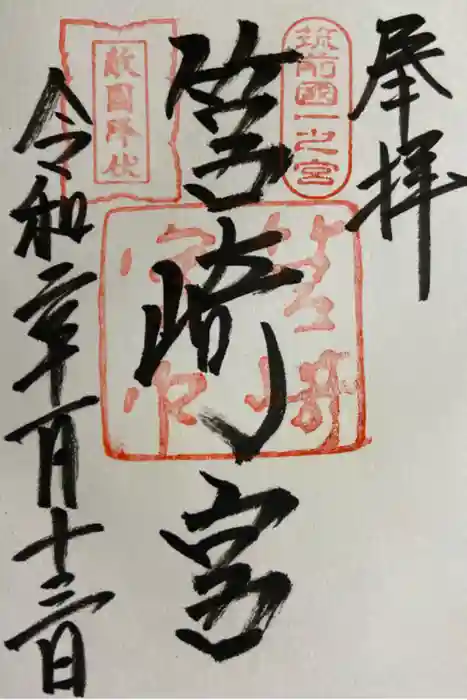 奉拝
筑前國一之宮
筥崎宮
筥崎
宮印
敵國降伏
令和二年一月十三日